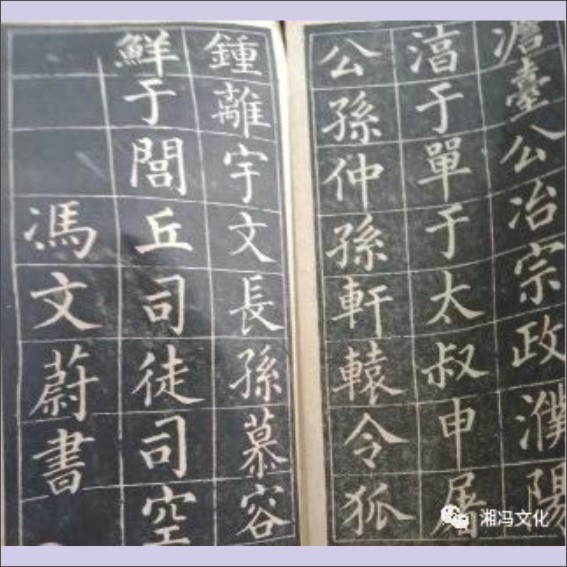 澹臺公冶宗政濮陽
湻于單于太叔申屠
公孫仲孫軒轅令狐
鍾離宇文長孫慕容
鮮于閭丘司徒司空
馮文蔚書
湘冯文化